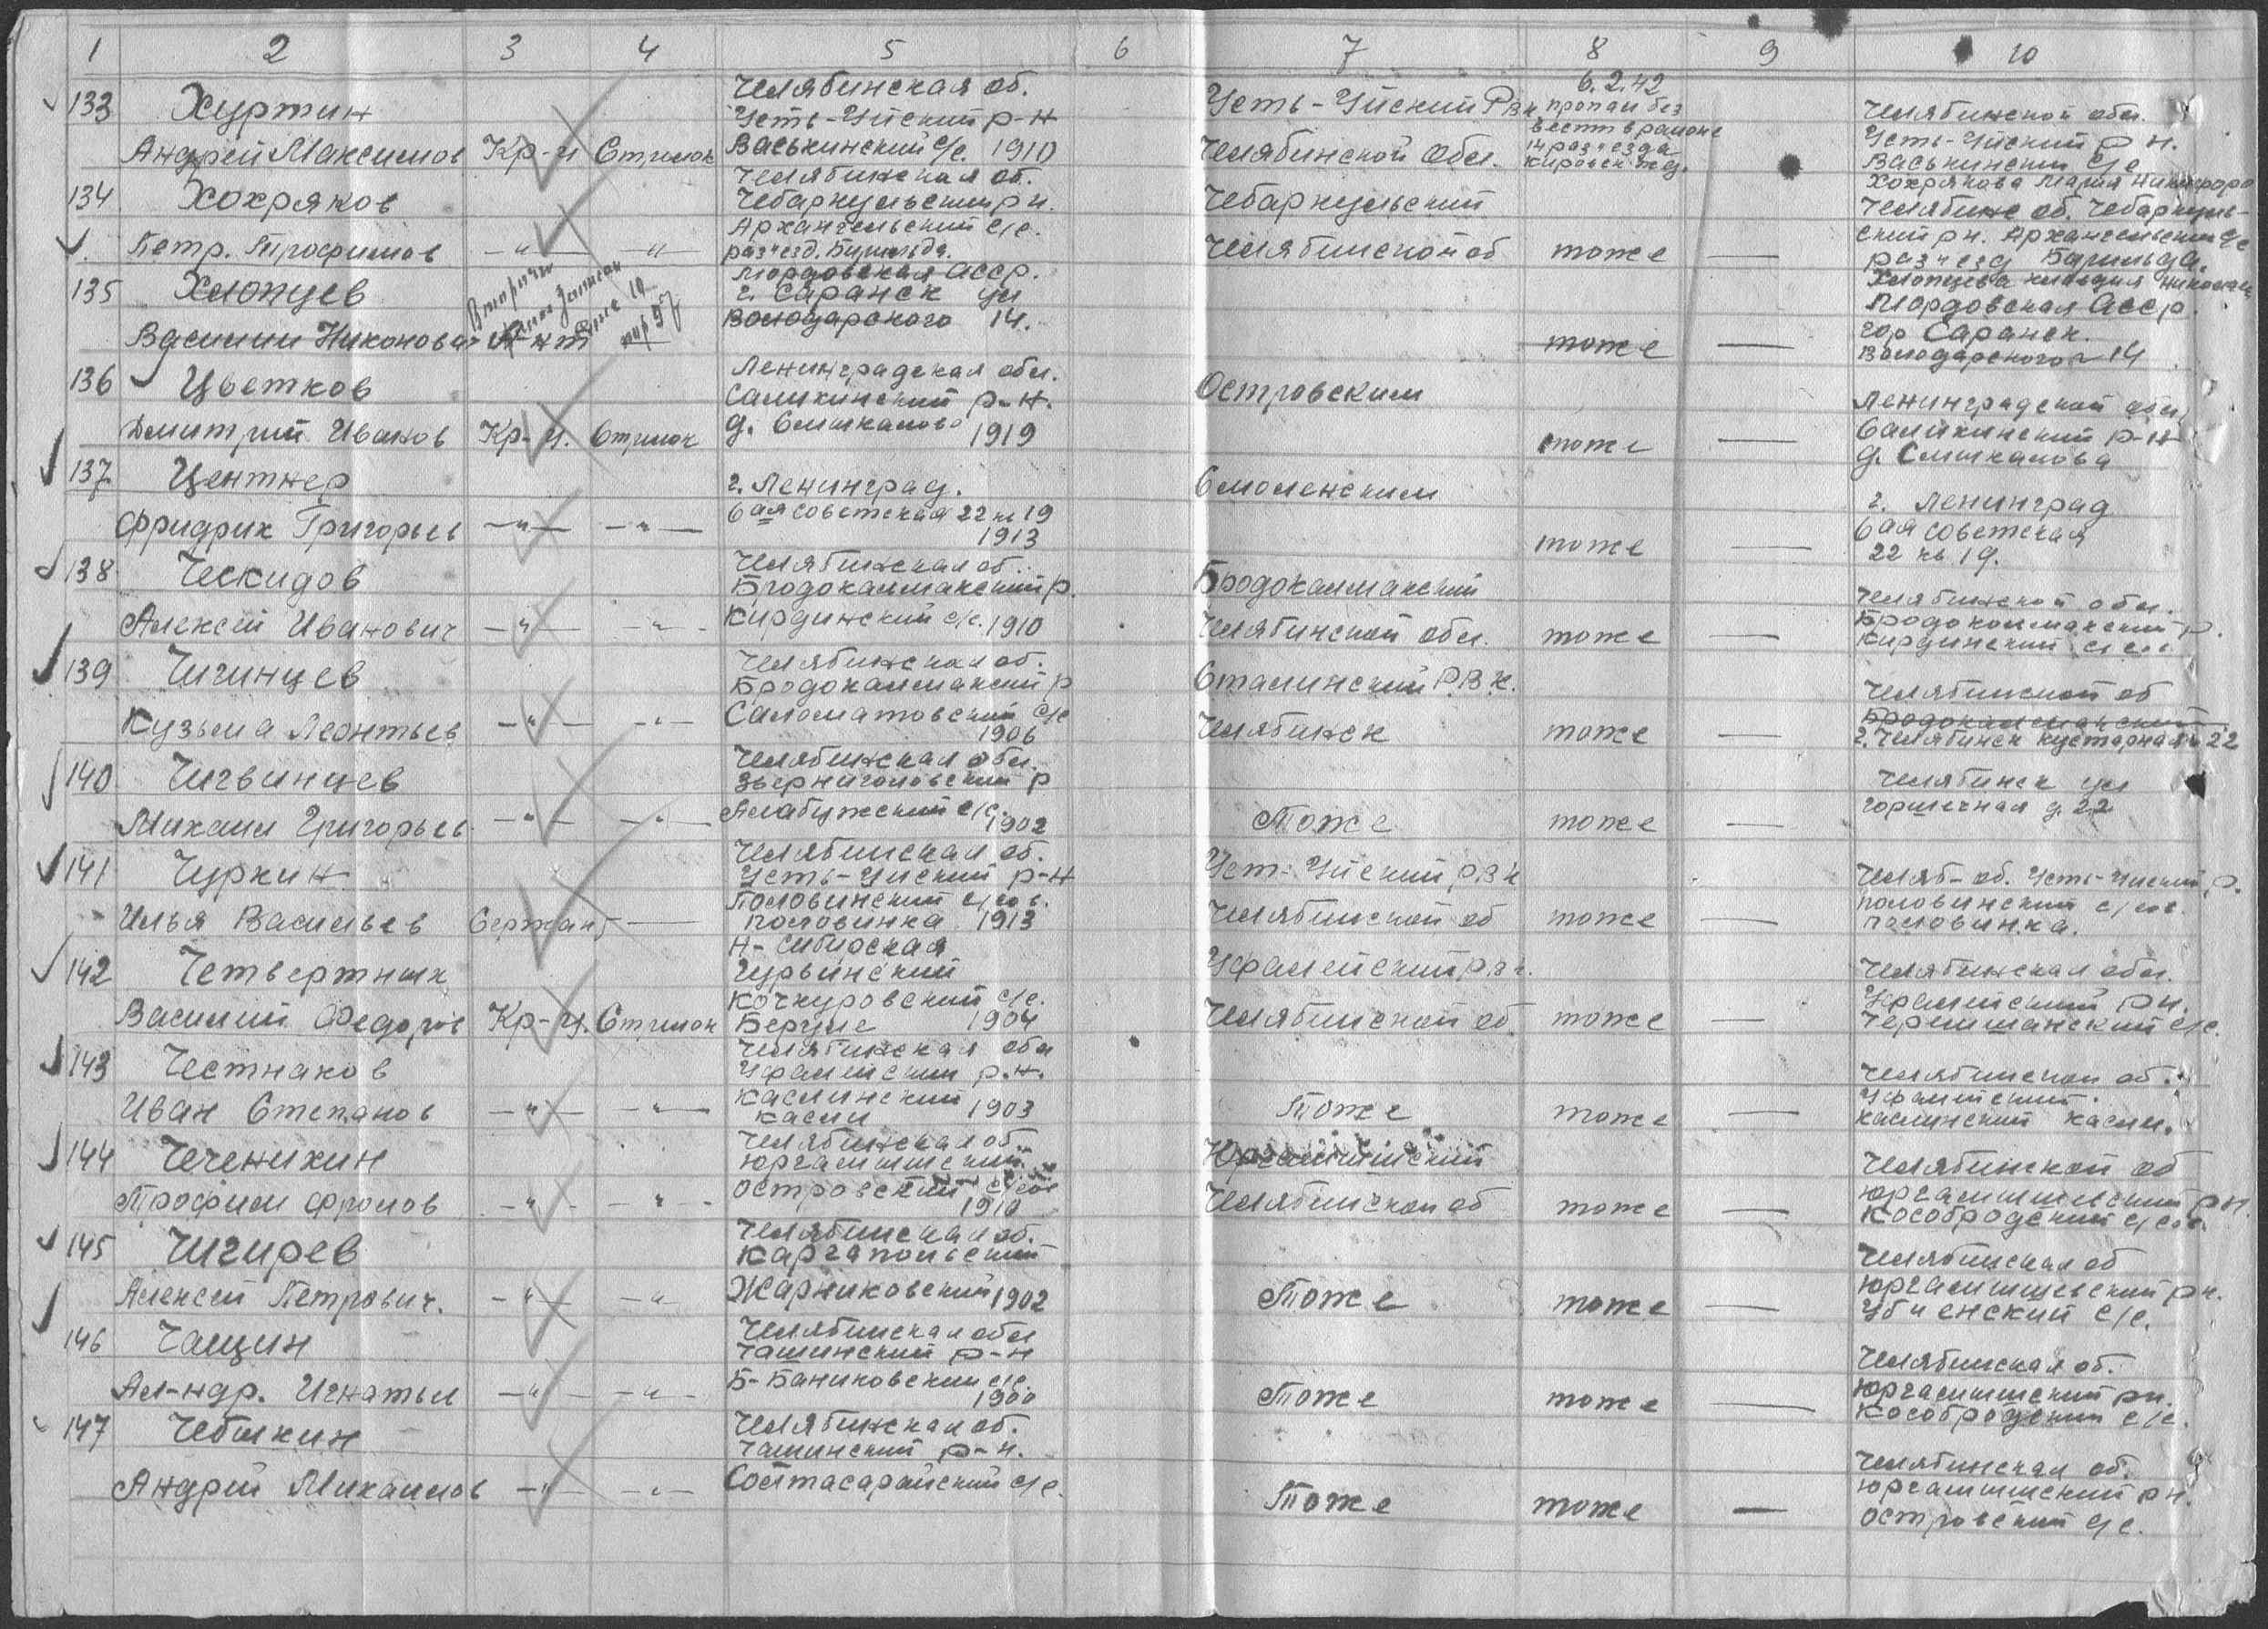 1 2 3 4 5 6 7 8 9 10
133 Хуртин
Андрей Максимов Кр-ц Стрелок
Челябинская об.
Усть-Уйский р-н
Васькинский с/с. 1910
Усть-Уйский РВК
Челябинской обл.
6.2.42
пропал без
вести в районе
14 разъезда
Кировск. ж.д.
Челябинской обл.
Усть-Уйский р н.
Васькинский с/с
134 Хохряков
Петр. Трофимов —"— —"
Челябинская об.
Чебаркульский р н.
Архангельский с/с.
разъезд. Бишкильда.
Чебаркульский
Челябинской об
тоже —
Хохрякова Мария
Челябинс об. Чебаркуль-
ский р н. Архангельский с/с
разъезд
135 Хлопцев
Василий Никонов
Вторично
записан
Мордовская Асср.
г. Саранск ул
Володарского 14.
тоже —
Хлопцева Клавдия
Мордовская Асср.
гор Саранск.
Володарского 14
136 Цветков
Дмитрий Иванов Кр-ц. Стрелок
Ленинградская обл.
р-н.
д. 1919
Островским
тоже —
Ленинградской обл.
р-н
д.
137 Центнер
Фридрих Григорьев —"— —"—
г. Ленинград.
6 ая советская 22 кв 19
1913
Смоленским
тоже —
г. Ленинград
6 ая советская
22 кв. 19.
138 Ческидов
Алексей Иванович —"— —"—
Челябинская об.
Бродокалмакский р.
Кирдинский с/с. 1910
Бродокалмакский
Челябинской обл.
тоже —
Челябинской обл.
Бродокалмакский р.
Кирдинский с/с
139 Чигинцев
Кузьма Леонтьев —"— —"—
Челябинская об.
Бродокалмакский р
Саломатовский с/с
1906
Сталинский Р.В.К.
Челябинск
тоже —
Челябинской об
Бродокалмакский
г. Челябинск кустарная 22
140 Чигвинцев
Михаил Григорьев —"— —"—
Челябинская обл.
Звериноголовский р
Алабужский с/с.
1902
Тоже
тоже —
Челябинск ул
горшечная д. 22
141 Чуркин
Илья Васильев Сержант —
Челябинская об.
Усть-Уйский р-н
Половинский с/сов.
половинка 1913
Уст-Уйский РВК
Челябинской об
тоже —
Челяб-об. Усть-Уйский р.
половинский с/сов.
половинка.
142 Четвертных
Василий Федоров Кр-ц. Стрелок
Н-Сибирская
Кочкуровский с/с.
1904
Уфалейский рвк.
Челябинской об.
тоже —
Челябинская обл.
Уфалейский р н.
Черемшанский с/с.
143 Честнаков
Иван Степанов —"— —"—
Челябинская обл
Уфалейский р.н.
Каслинский
Касли 1903
Тоже
тоже —
Челябинской об.
Уфалейский.
Каслинский Касли.
144 Чеченихин
Трофим Фролов —"— —"—
Челябинская об.
Юргамышский
островский с/сов
1910
Юргамышский
Челябинской об
тоже —
Челябинской об
Юргамышский р н.
Кособродский с/сов.
145 Чигирев
Алексей Петрович. —"— —"
Челябинская об.
Каргапольский
Жарниковский 1902
Тоже
тоже —
Челябинская об
Юргамышевский р н.
с/с.
146 Чащин
Ал-ндр. Игнатьев —"— —"—
Челябинская обл
Чашинский р-н
Б-Баниковский с/с.
1900
Тоже
тоже —
Челябинская об.
Юргамышский р н.
Кособродский с/с.
147 Чебыкин
Андрей Михайлов —"— —"—
Челябинская об.
Чашинский р-н.
Сойтасарайский с/с.
Тоже
тоже —
Челябинская об.
Юргамышский р н.
островский с/с.